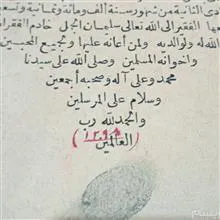 الثامنة من شهور سنة ألف ومائة وثمانية وتسعين
الفقير إلى الله تعالى سليمان الجمل خادم الفقراء
الله له ولوالديه ولمن أعانه عليها ولجميع المحبين
واخوانه المسلمين وصلى الله على سيدنا
محمد وعلى آله وصحبه أجمعين
وسلام على المرسلين
والحمد لله رب
العالمين